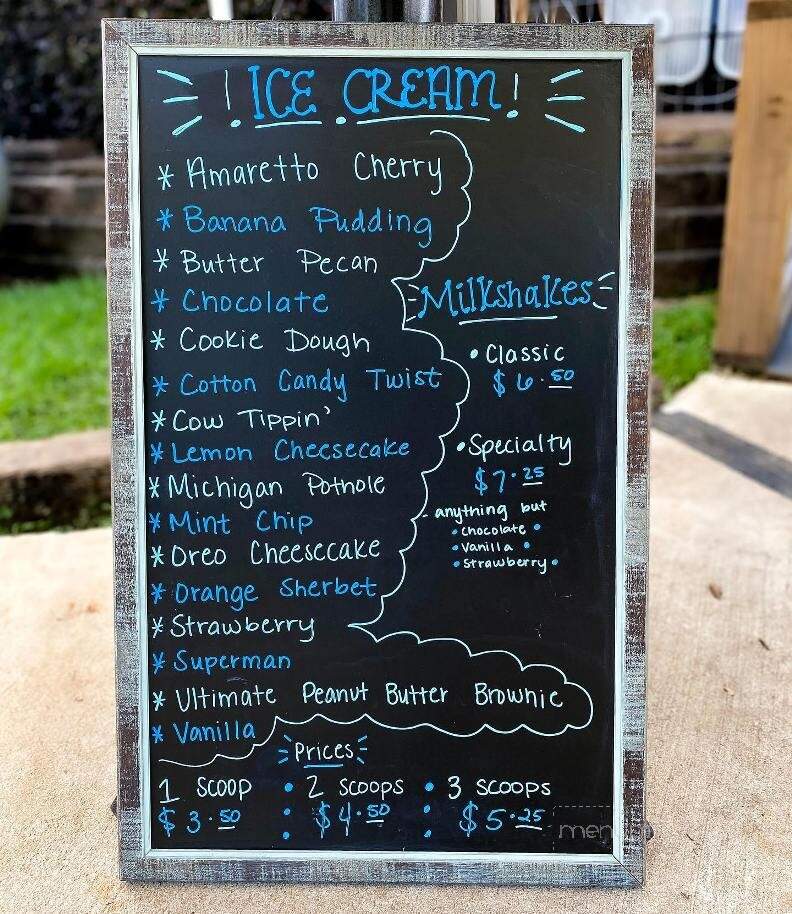 ! ICE CREAM !
* Amaretto Cherry
* Banana Pudding
* Butter Pecan
* Chocolate
* Cookie Dough
* Cotton Candy Twist
* Cow Tippin'
* Lemon Cheesecake
* Michigan Pothole
* Mint Chip
* Oreo Cheesecake
* Orange Sherbet
* Strawberry
* Superman
* Ultimate Peanut Butter Brownie
* Vanilla
Milkshakes
• Classic
$6.50
• Specialty
$7.25
- anything but
• Chocolate •
• Vanilla •
• Strawberry •
Prices
1 SCOOP • 2 SCOOPS • 3 SCOOPS
$3.50 • $4.50 • $5.25